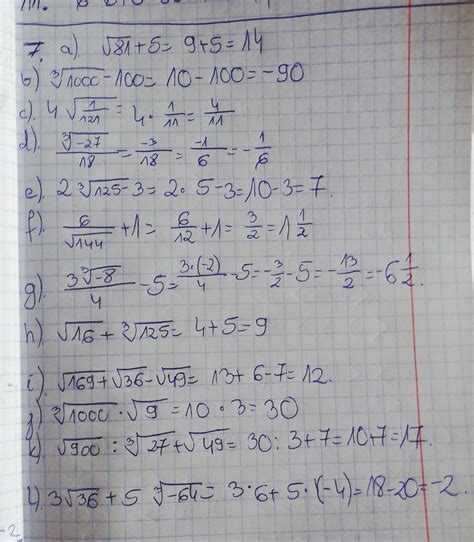 7. a) √81 + 5 = 9 + 5 = 14
b) ∛1000 - 100 = 10 - 100 = -90
c). 4 √(1/121) = 4 · 1/11 = 4/11
d). ∛-27/18 = -3/18 = -1/6 = -1/6
e). 2 ∛125 - 3 = 2 · 5 - 3 = 10 - 3 = 7.
f). 6/√144 + 1 = 6/12 + 1 = 3/2 = 1 1/2
g). 3∛-8/4 - 5 = 3·(-2)/4 - 5 = -3/2 - 5 = -13/2 = -6 1/2.
h). √16 + ∛125 = 4 + 5 = 9
i). √169 + √36 - √49 = 13 + 6 - 7 = 12.
j). ∛1000 · √9 = 10 · 3 = 30
k). √900 : ∛27 + √49 = 30 : 3 + 7 = 10 + 7 = 17.
l). 3√36 + 5 ∛-64 = 3 · 6 + 5 · (-4) = 18 - 20 = -2.
-2